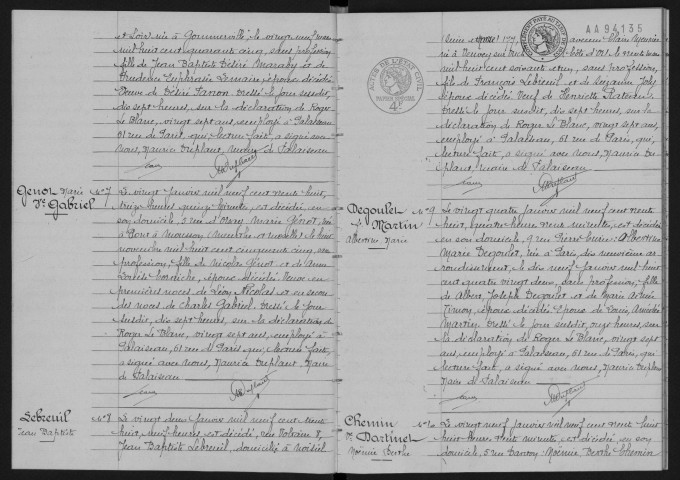 et Loir née à Gommerville le vingt neuf mai
mil huit cent quarante cinq, sans profession,
fille de Jean Baptiste Désiré
Prudence Euphrasie Lemaire, épouse décédée
Veuve de Désiré Dressé le jour susdit,
dix sept heures, sur la déclaration de Roger
Le Blanc, vingt sept ans, employé à Palaiseau
61 rue de Paris, qui, lecture faite, a signé avec
nous, Maurice Maire de Palaiseau
Genot Marie
Vve Gabriel
No 7
Le vingt janvier mil neuf cent trente huit,
heures quinze minutes, est décédée, en
son domicile, 5 rue d'Orsay, Marie Génot, née
à Pont à Mousson Meurthe et Moselle le huit
novembre mil huit cent cinquante cinq, sans
profession, fille de Nicolas Génot et de Anne
Louise épouse décédée Veuve en
premières noces de Léon Nicolas et en secon
des noces de Charles Gabriel. Dressé le jour
susdit, dix sept heures, sur la déclaration de
Roger Le Blanc, vingt sept ans, employé à
Palaiseau, 61 rue de Paris qui, lecture faite,
a signé avec nous, Maurice Maire
de Palaiseau
Lebreuil
Jean Baptiste
No 8
Le vingt deux janvier mil neuf cent trente
huit, neuf heures est décédé, rue Voltaire 8
Jean Baptiste Lebreuil, domicilié à Noisiel
AA94135
ACTES DE L'ÉTAT CIVIL
4F
né à
mil huit cent soixante et un, sans profession,
fils de François Lebreuil et de Suzanne
époux décédé Veuf de Henriette
Dressé le jour susdit, dix sept heures, sur la
déclaration de Roger Le Blanc, vingt sept ans,
employé à Palaiseau, 61 rue de Paris, qui,
lecture faite, a signé avec nous, Maurice
Maire de Palaiseau
Degoulet
f. Martin
Albertine Marie
No 9
Le vingt quatre janvier mil neuf cent trente
huit, quatre heures trente minutes, est décédée
en son domicile, 9 rue Pierre Curie: Albertine
Marie Degoulet, née à Paris dix neuvième ar
rondissement, le dix neuf janvier mil huit
cent quatre vingt deux, sans profession, fille
de Albert Joseph Degoulet et de Marie
épouse décédée Epouse de Louis
Martin Dressé le jour susdit, onze heures, sur
la déclaration de Roger Le Blanc, vingt sept
ans, employé à Palaiseau, 61 rue de Paris, qui
lecture faite, a signé avec nous, Maurice
Maire de Palaiseau
Chemin
Vve Dartinet
Noëmie Berthe
No 10
Le vingt neuf janvier mil neuf cent trente huit
huit heures trente minutes, est décédée, en son
domicile, 5 rue Danton: Noëmie Berthe Chemin